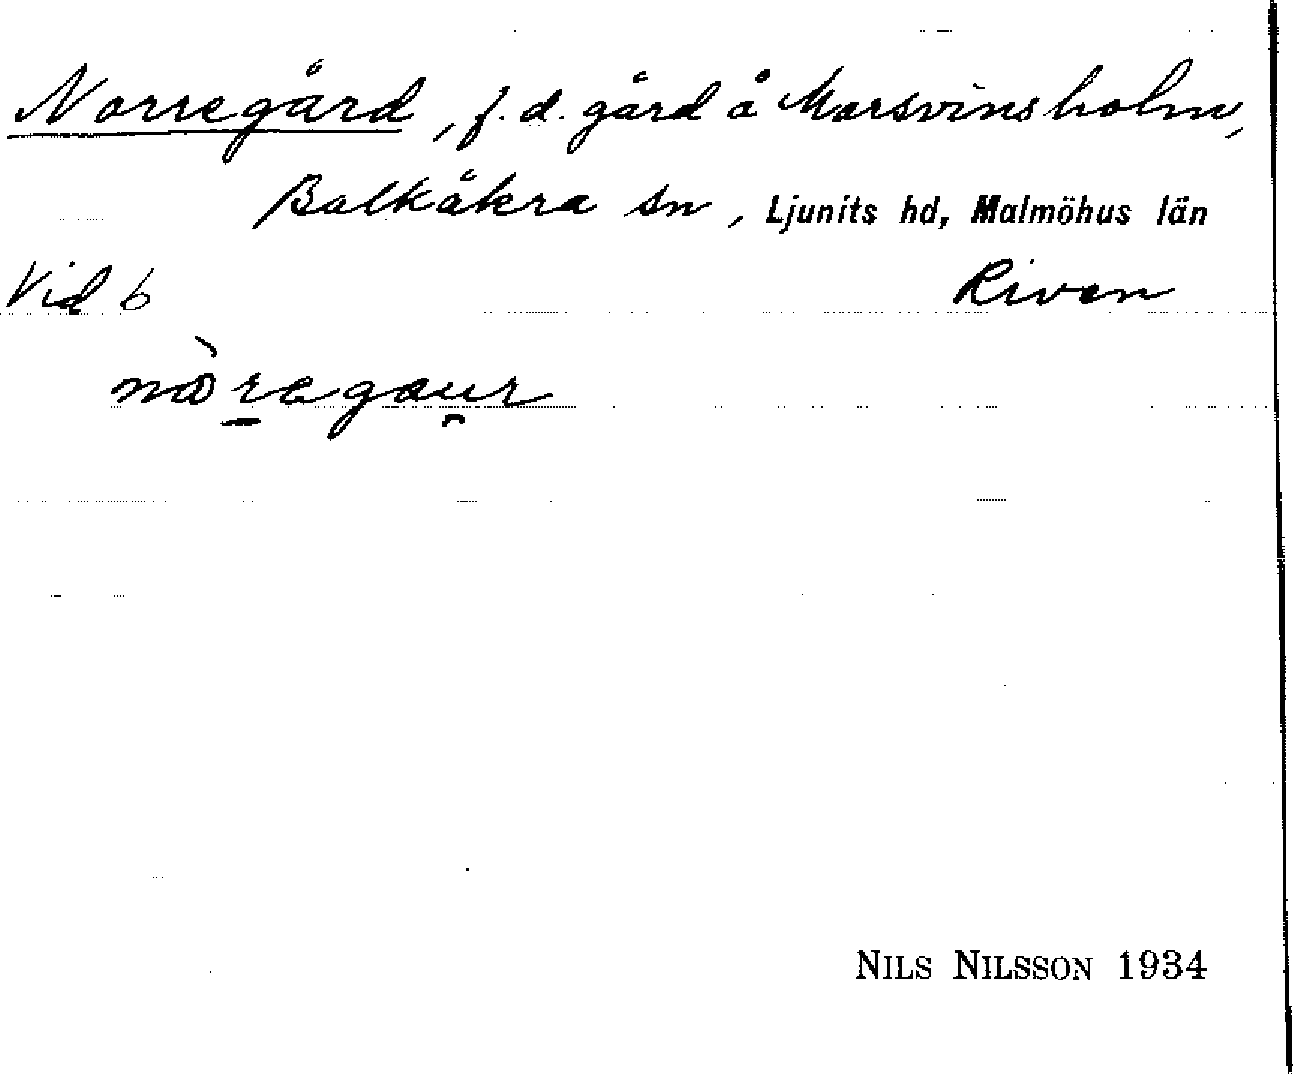 Norregård, f.d. gård å Marsvinsholm,
Balkåkra sn, Ljunits hd, Malmöhus län
Vid 6 Riven
NILS NILSSON 1934